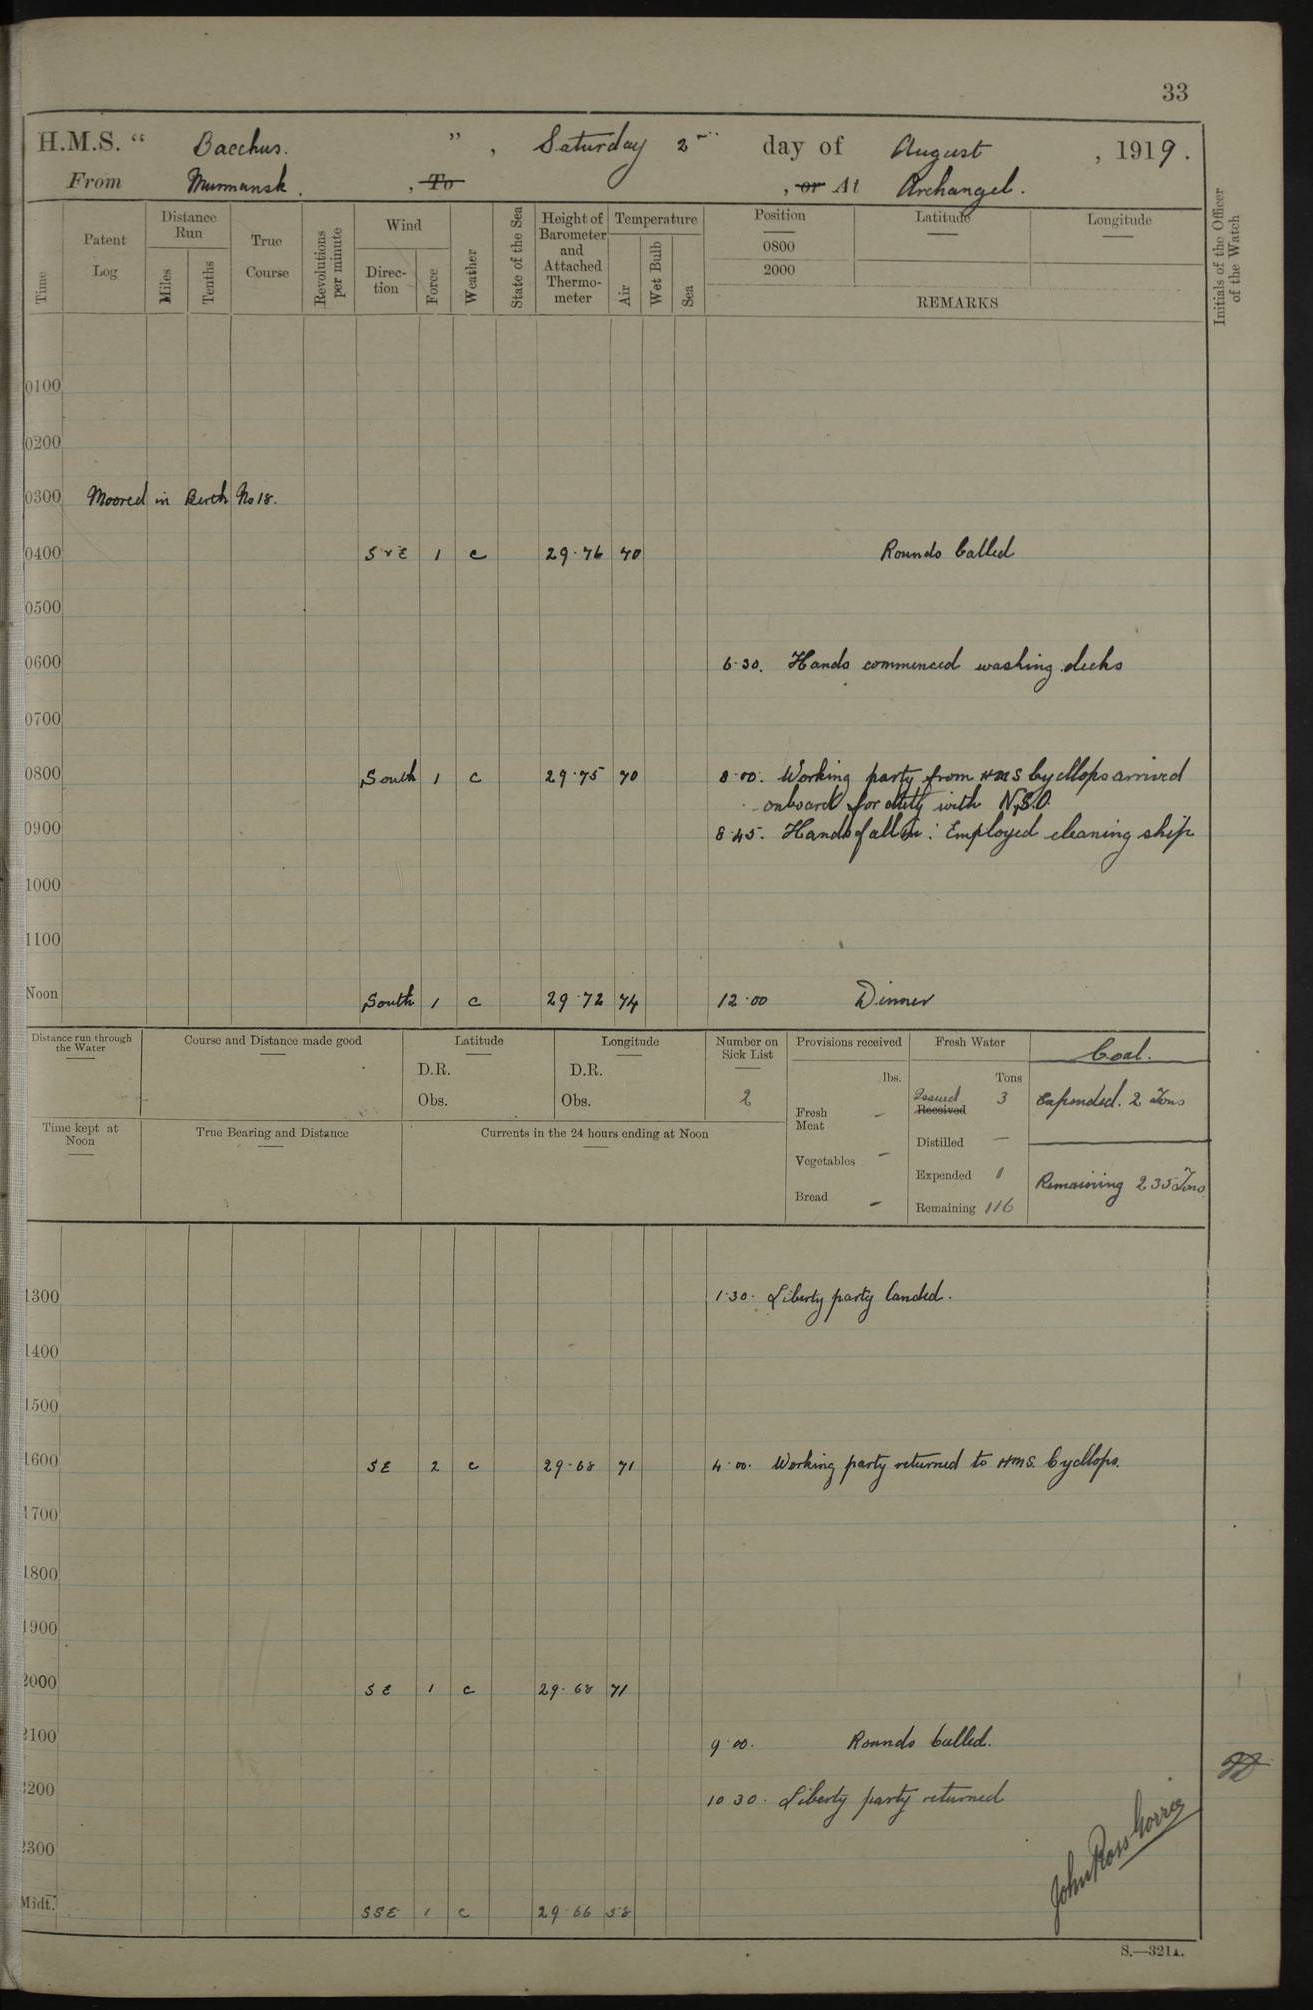 33
H.M.S. “ Bacchus. ” , Saturday 2nd day of August , 1919.
From Murmansk. , To , or At Archangel.
Time
Patent Log
Distance Run
Miles
Tenths
True Course
Revolutions per minute
Wind
Direc-tion
Force
Weather
State of the Sea
Height of Barometer and Attached Thermo-meter
Temperature
Air
Wet Bulb
Sea
Position Latitude Longitude
0800
2000
REMARKS
Initials of the Officer of the Watch
0100
0200
0300 Moored in Berth No 18.
0400 SvE 1 c 29.76 70 Rounds Called
0500
0600 6.30. Hands commenced washing decks
0700
0800 South 1 c 29.75 70 8.00. Working party from HMS Cycllops arrived
onboard for duty with N.S.O.
0900 8.45. Hands fall in: Employed cleaning ship
1000
1100
Noon South 1 c 29.72 74 12.00 Dinner
Distance run through the Water
Course and Distance made good
Latitude
D.R.
Obs.
Longitude
D.R.
Obs.
Number on Sick List
2
Provisions received
lbs.
Fresh Meat –
Vegetables –
Bread –
Fresh Water
Tons
Issued 3
Received
Distilled –
Expended 1
Remaining 116
Coal.
Expended. 2 Tons
Remaining 235 Tons
Time kept at Noon
True Bearing and Distance
Currents in the 24 hours ending at Noon
1300 1.30. Liberty party landed.
1400
1500
1600 SE 2 c 29.68 71 4.00. Working party returned to HMS. Cycllops.
1700
1800
1900
2000 SE 1 c 29.68 71
2100 9.00. Rounds Called.
2200 10.30. Liberty party returned
2300
Midt. SSE 1 c 29.66 58
John Ross
S.—321A.